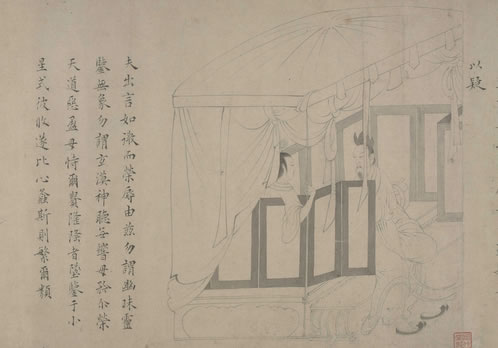 以疑
夫出言如微而榮辱由茲勿謂幽昧靈
鑒無象勿謂玄漠神聽無響毋矜尔榮
天道惡盈毋恃爾貴隆隆者墜鑒于小
星戒彼攸遂比心螽斯則繁爾類